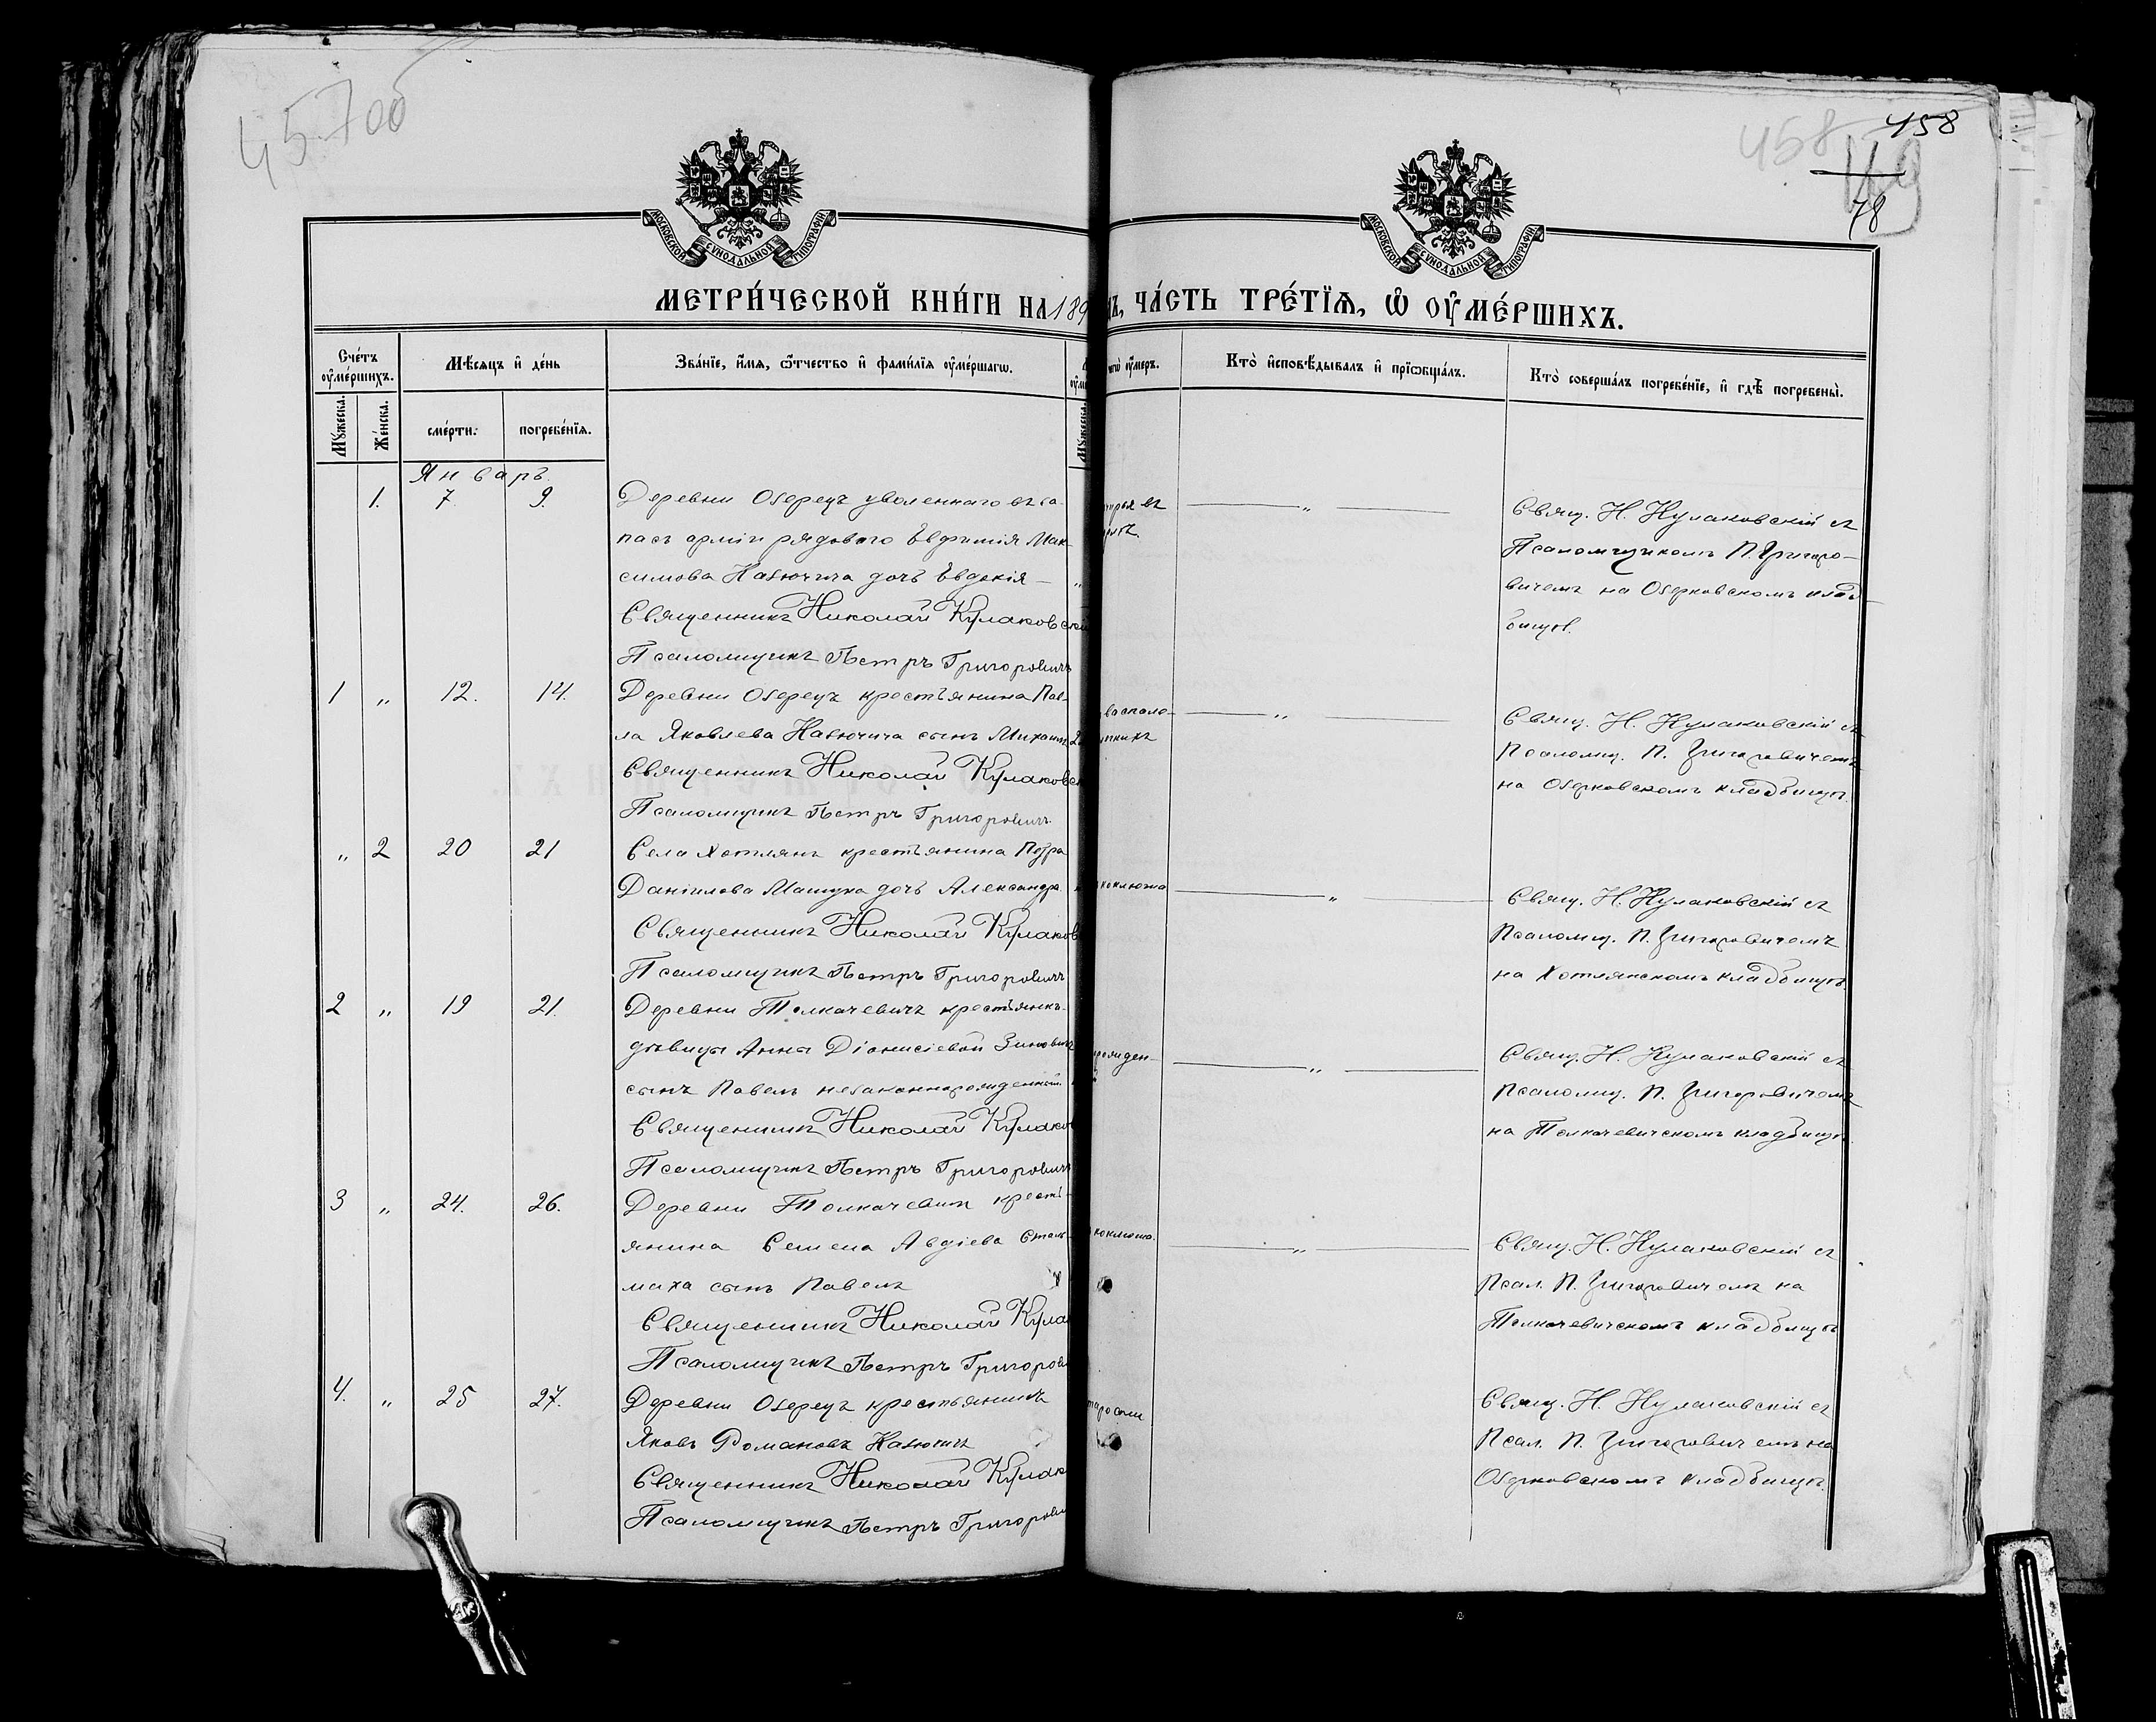 45700
458 458
119
78
МОСКОВСКОЙ СУНОДАЛЬНОЙ ТИПОГРАФІИ
МОСКОВСКОЙ СУНОДАЛЬНОЙ ТИПОГРАФІИ
МЕТРИ́ЧЕСКОЙ КНИ́ГИ НА 189
ЧА́СТЬ ТРЕ́ТЇѦ, Ѡ ОУ҆МЕ́РШИХЪ.
Сче́тъ оу҆ме́ршихъ.
Мѣ́сяцъ и҆ де́нь
Зва́нїе, и҆́мя, ѻ҆́тчество и҆ фами́лїя оу҆ме́ршагѡ.
оу҆́меръ.
Кто̀ и҆сповѣ́дывалъ и҆ прїѻбща́лъ.
Кто̀ соверша́лъ погребе́нїе, и҆ гдѣ̀ погребены̀.
Мꙋ́жеска.
Же́нска.
сме́рти.
погребе́нїѧ.
Мꙋ́жеска.
Январь.
1. 7. 9. Деревни Озерецъ уволеннаго въ за-
пасъ арміи рядового Евфимія Мак-
симова Назючича дочь Евдокія —
Священникъ Николай Кулаковскій
Псаломщикъ Петръ Григоровичъ
„
Свящ. Н. Кулаковскій съ
Псаломщикомъ П. Григоро-
вичемъ на Озерковскомъ клад-
бищѣ.
1 „ 12. 14. Деревни Озерецъ крестьянина Пав-
ла Яковлева Назючича сынъ Михаилъ
Священникъ Николай Кулаковс
Псаломщикъ Петръ Григоровичъ
воспале-
„
Свящ. Н. Кулаковскій съ
Псаломщ. П. Григоровичемъ
на Озерковскомъ кладбищѣ.
„ 2 20 21 Села Хотлянъ крестьянина Петра
Даніилова Мащука дочь Александра.
Священникъ Николай Кулаков
Псаломщикъ Петръ Григоровичъ
коклюша
„
Свящ. Н. Кулаковскій съ
Псаломщ. П. Григоровичемъ
на Хотлянскомъ кладбищѣ.
2 „ 19 21. Деревни Толкачевичъ крестьянки-
дѣвицы Анны Діонисіевой Зинович
сынъ Павелъ незаконнорожденный.
Священникъ Николай Кулаков
Псаломщикъ Петръ Григоровичъ
рожден-
„
Свящ. Н. Кулаковскій съ
Псаломщ. П. Григоровичемъ
на Толкачевичскомъ кладбищѣ.
3 „ 24. 26. Деревни Толкачевичъ кресть-
янина Семена Авдіева Стель-
маха сынъ Павелъ
Священникъ Николай Кула
Псаломщикъ Петръ Григоров
коклюша.
„
Свящ. Н. Кулаковскій съ
Псал. П. Григоровичемъ на
Толкачевичскомъ кладбищѣ
4. „ 25 27. Деревни Озерецъ крестьянинъ
Яковъ Романовъ Назючичъ
Священникъ Николай Кулак
Псаломщикъ Петръ Григорови
тарости
Свящ. Н. Кулаковскій съ
Псал. П. Григоровичемъ на
Озерковскомъ кладбищѣ.